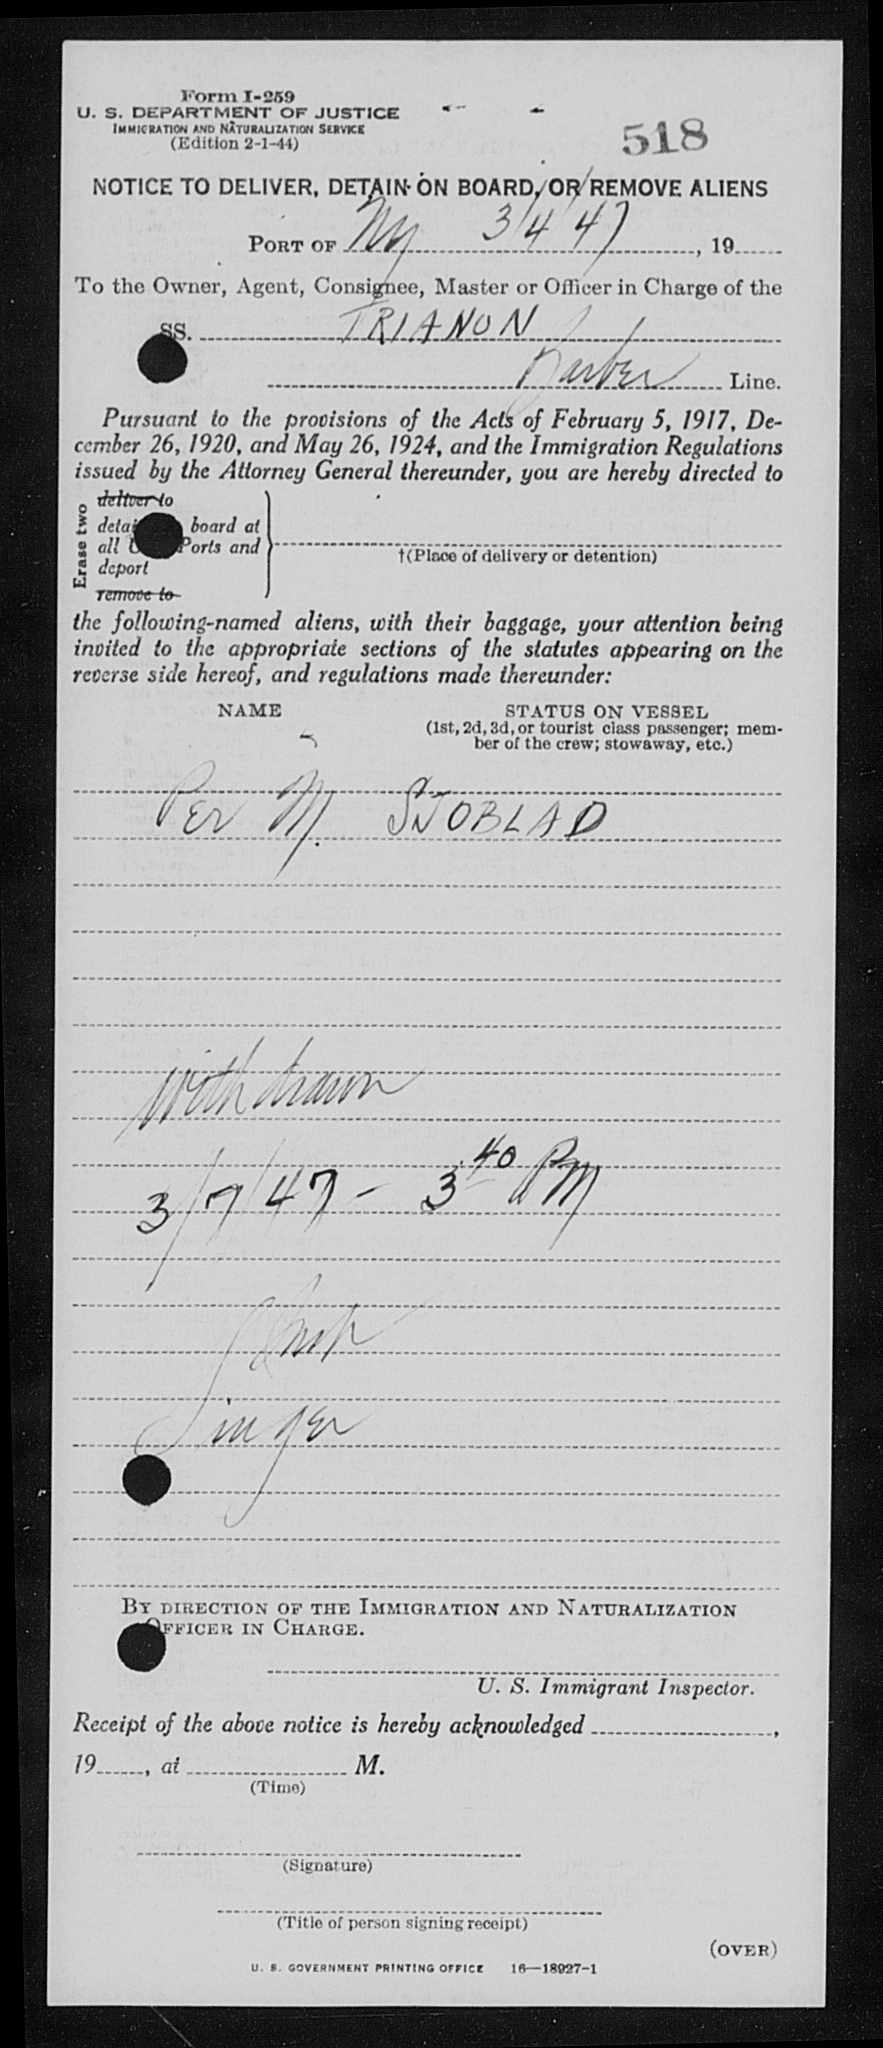 Form I-259
U. S. DEPARTMENT OF JUSTICE
IMMIGRATION AND NATURALIZATION SERVICE
(Edition 2-1-44)
518
NOTICE TO DELIVER, DETAIN ON BOARD, OR REMOVE ALIENS
PORT OF Ny 3/4/47, 19
To the Owner, Agent, Consignee, Master or Officer in Charge of the
SS. TRIANON
Barber Line.
Pursuant to the provisions of the Acts of February 5, 1917, De-
cember 26, 1920, and May 26, 1924, and the Immigration Regulations
issued by the Attorney General thereunder, you are hereby directed to
Erase two
deliver to
detai board at
all U Ports and
deport
remove to
†(Place of delivery or detention)
the following-named aliens, with their baggage, your attention being
invited to the appropriate sections of the statutes appearing on the
reverse side hereof, and regulations made thereunder:
NAME STATUS ON VESSEL
(1st, 2d, 3d, or tourist class passenger; mem-
ber of the crew; stowaway, etc.)
Per M. SJOBLAD
Withdrawn
3/7/47 - 3 40 PM
Singer
BY DIRECTION OF THE IMMIGRATION AND NATURALIZATION
OFFICER IN CHARGE.
U. S. Immigrant Inspector.
Receipt of the above notice is hereby acknowledged ,
19 , at M.
(Time)
(Signature)
(Title of person signing receipt)
(OVER)
U. S. GOVERNMENT PRINTING OFFICE 16—18927-1